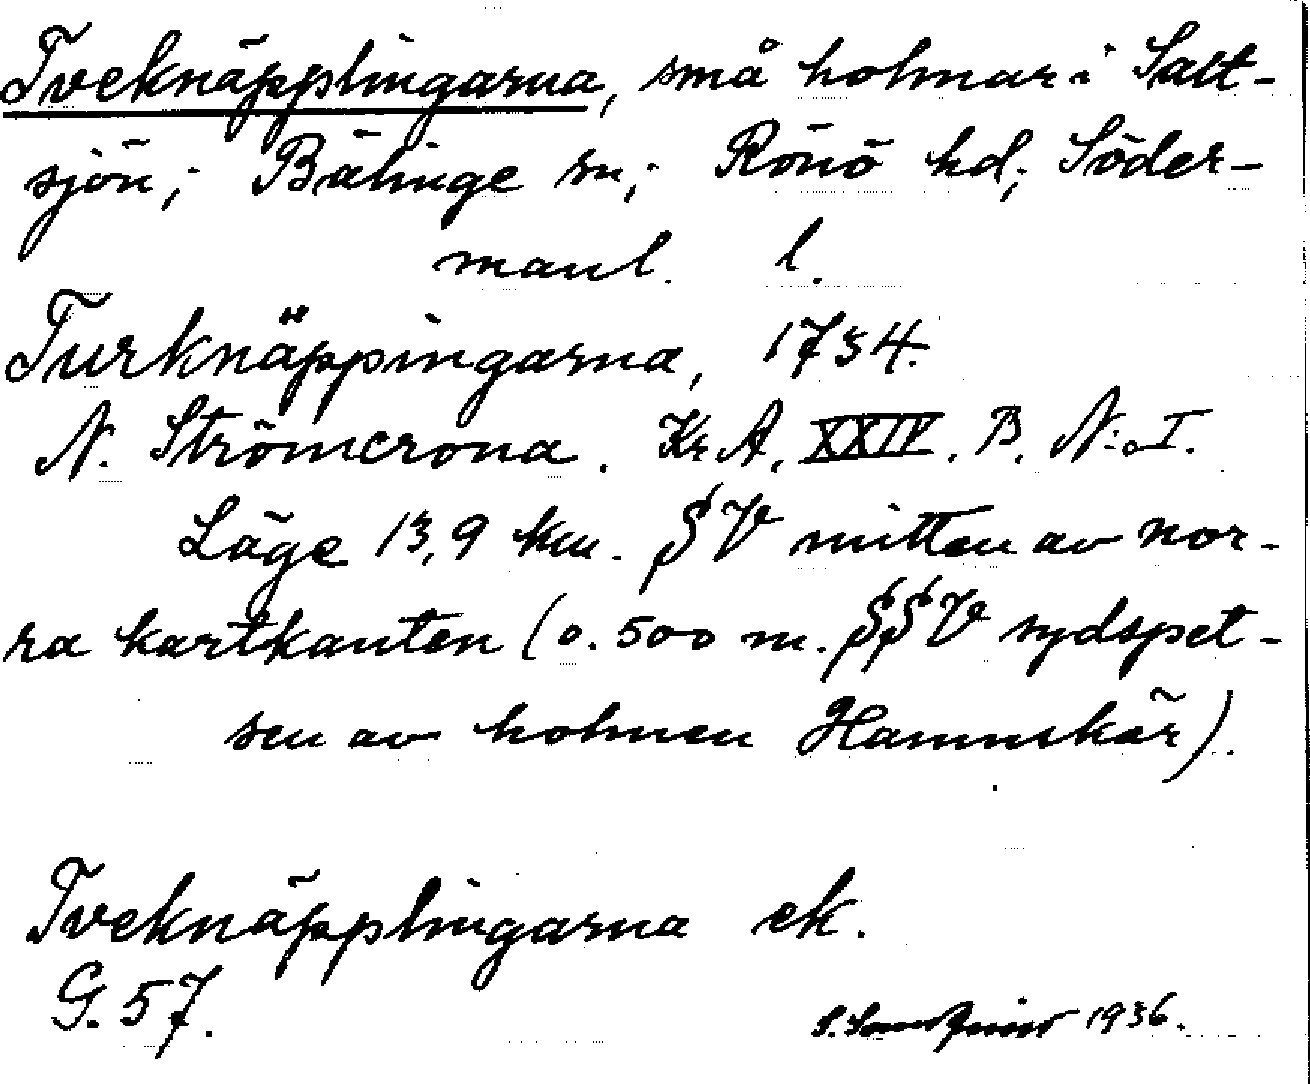 Tveknäpplingarna, små holmar i Salt-
sjön; Bälinge sn; Rönö hd; Söder-
manl. l.
Turknäppingarna, 1734.
N. Strömcrona. Kr. A. XXIV. B. N:o I.
Läge 13,9 km. §V mitten av nor-
ra kartkanten (o. 500 m. §§V sydspet-
sen av holmen Hamnskär).
Tveknäpplingarna ek.
G. 57.
1936.